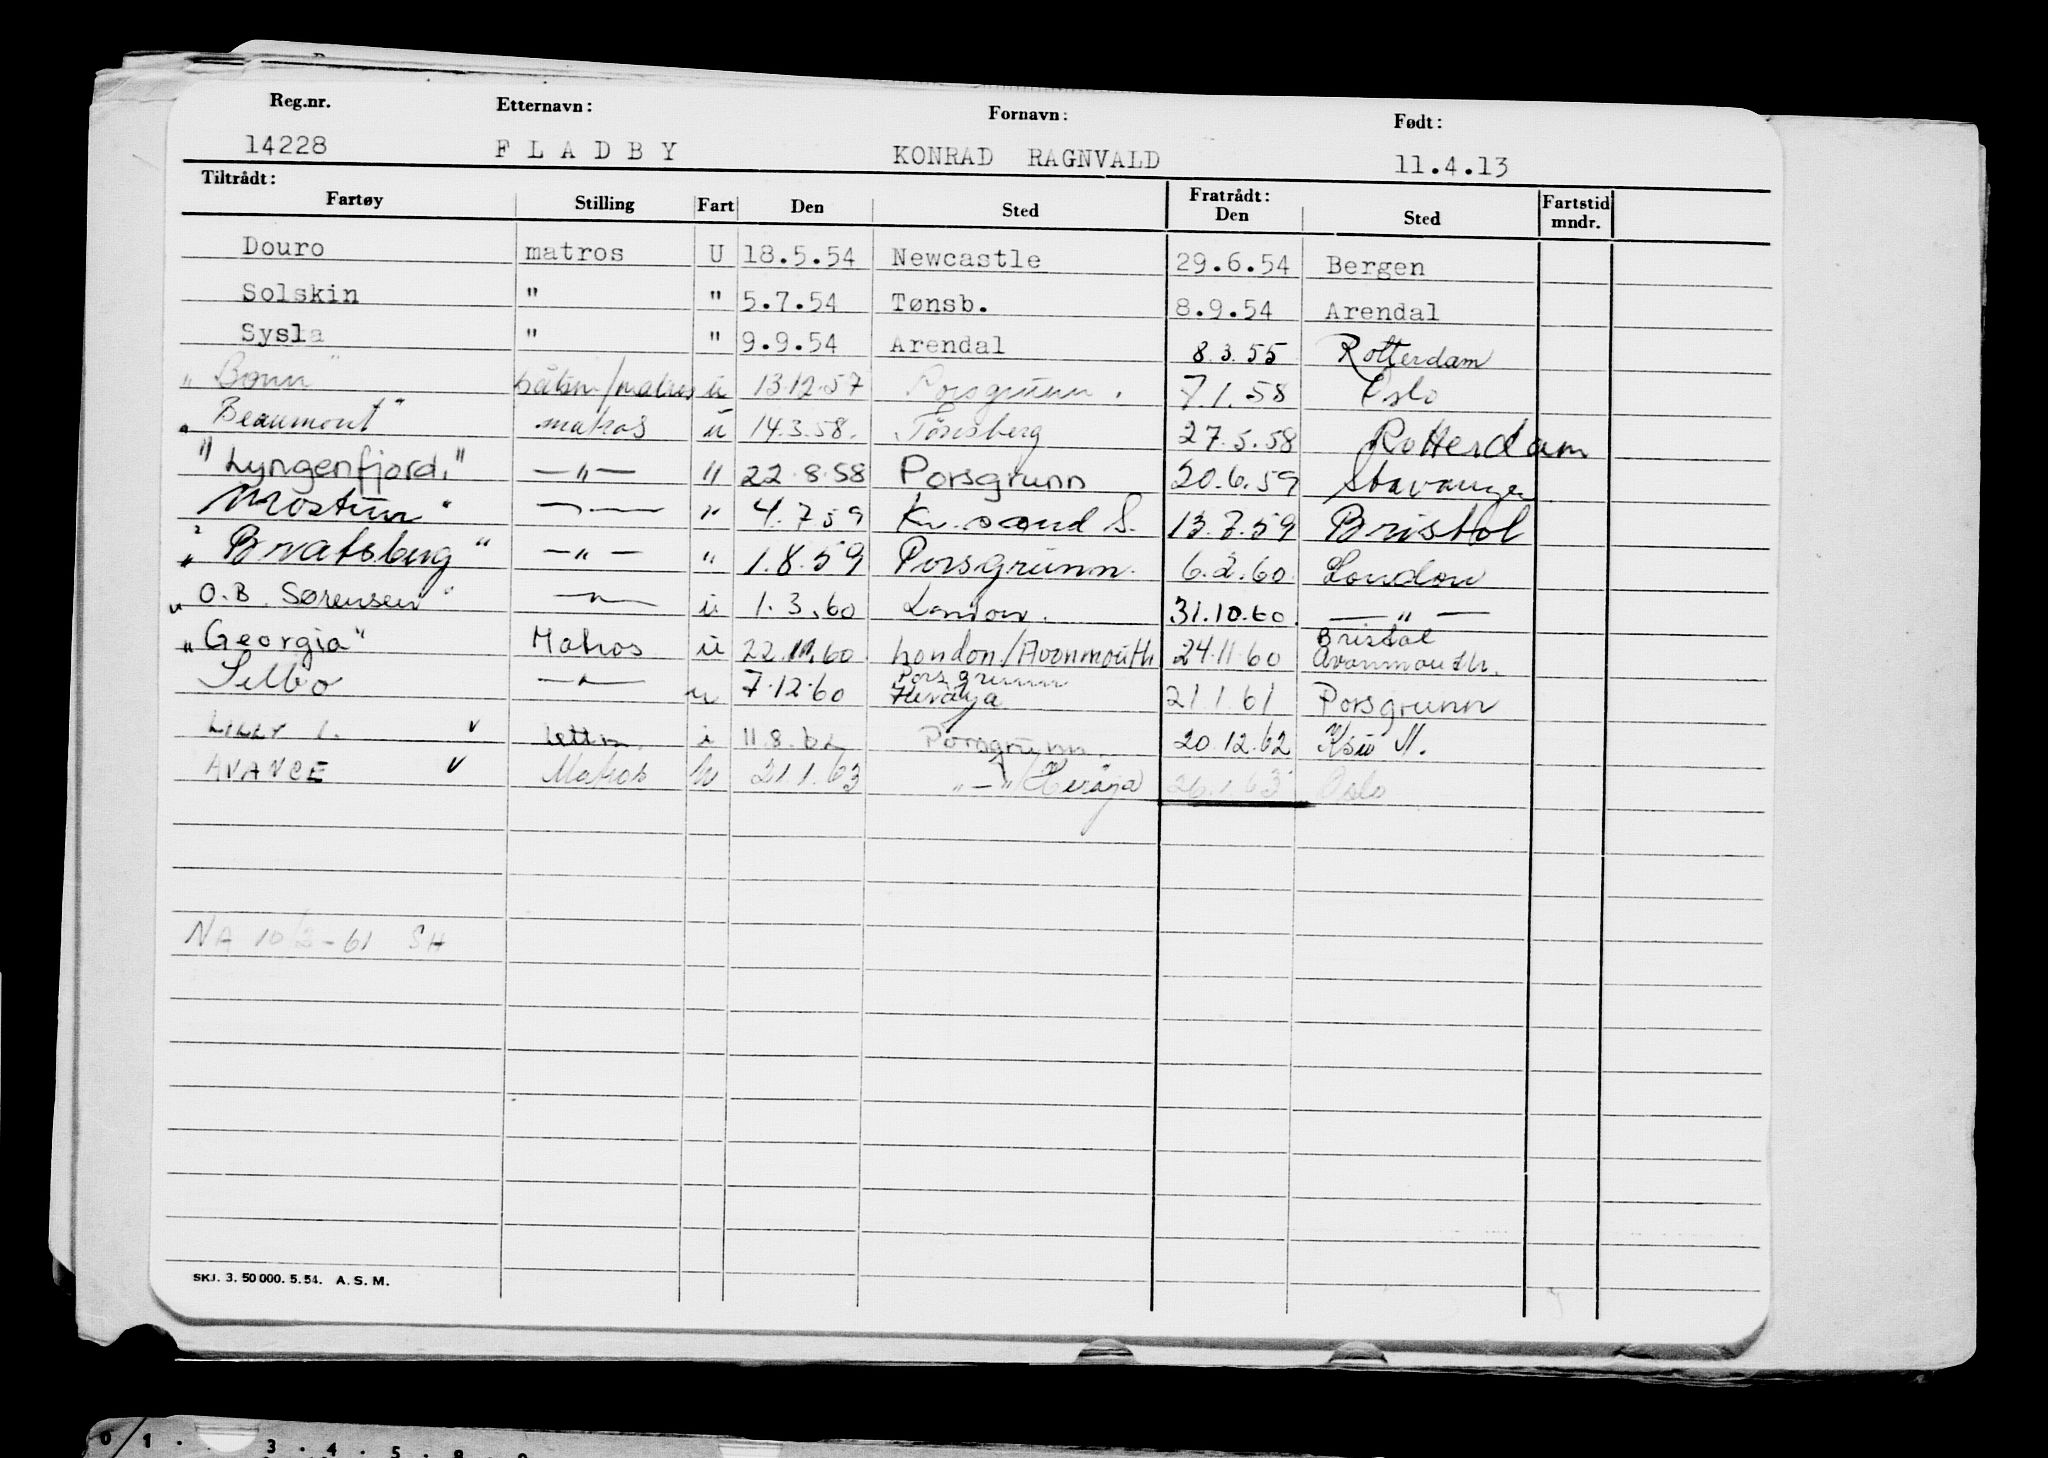 Reg.nr. Etternavn: Fornavn: Født:
14228 F L A D B Y KONRAD RAGNVALD 11.4.13
Tiltrådt: Fratrådt:
Fartøy Stilling Fart Den Sted Den Sted Fartstid mndr.
Douro matros U 18.5.54 Newcastle 29.6.54 Bergen
Solskin " " 5.7.54 Tønsb. 8.9.54 Arendal
Sysla " " 9.9.54 Arendal 8.3.55 Rotterdam
"Bonn" båtsm/matros u 13.12.57 Porsgrunn. 7.1.58 Oslo
"Beaumont" matros u 14.3.58. Tönsberg 27.5.58 Rotterdam
"Lyngenfjord." —"— " 22.8.58 Porsgrunn 20.6.59 Stavanger
" 4.7.59 Kr.sand S. 13.7.59 Bristol
"Bratsberg" —"— " 1.8.59 Porsgrunn. 6.2.60. London
"O.B. Sørensen" —"— u 1.3.60 London. 31.10.60. —"—
"Georgia" Matros u 22.11.60 London/Avonmouth 24.11.60 Bristol Avonmouth.
Selbo —"— u 7.12.60 Porsgrunn Herøya 21.1.61 Porsgrunn
LILLY I. v i 11.8.62 Porsgrunn 20.12.62 Ksu N.
AVANCE v Matros 21.1.63 "—" Herøya 26.1.63 Oslo
NA 10/3-61 SH
SKJ. 3. 50 000. 5.54. A. S. M.
0 1 3 4 5